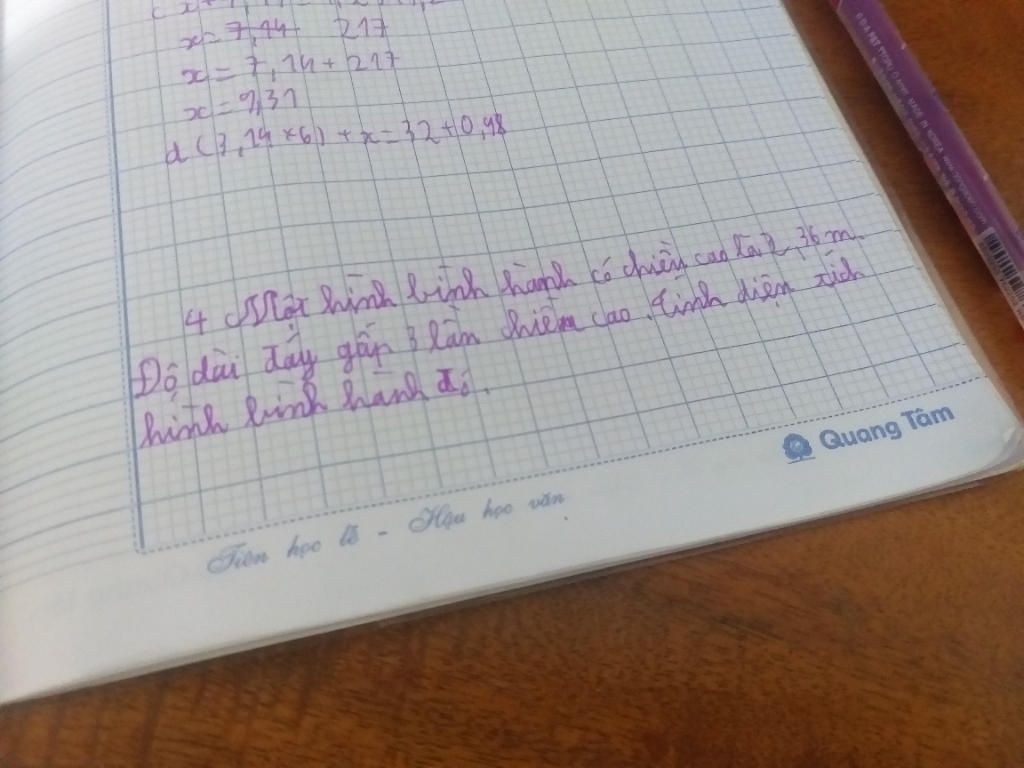 x = 7,14 217
x = 7,14 + 217
x = 9,31
d (3,14 × 6) + x = 32 + 0,98
4 Một hình bình hành có chiều cao là 2,36 m.
Độ dài đấy gấp 3 lần chiều cao. Tính diện tích
hình bình hành đó.
Quang Tâm
Tiên học lễ - Hậu học văn